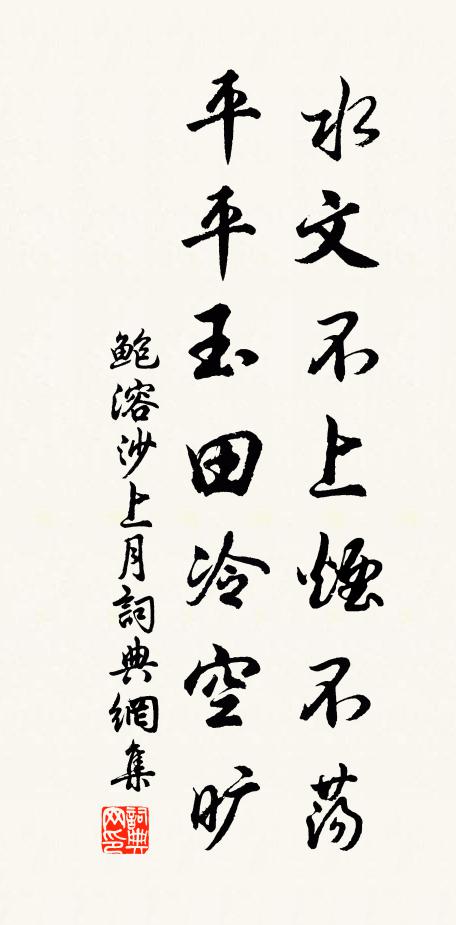 水文不上煙不蕩
平平玉田冷空旷
鲍溶沙上月詞典網集
詞典网印